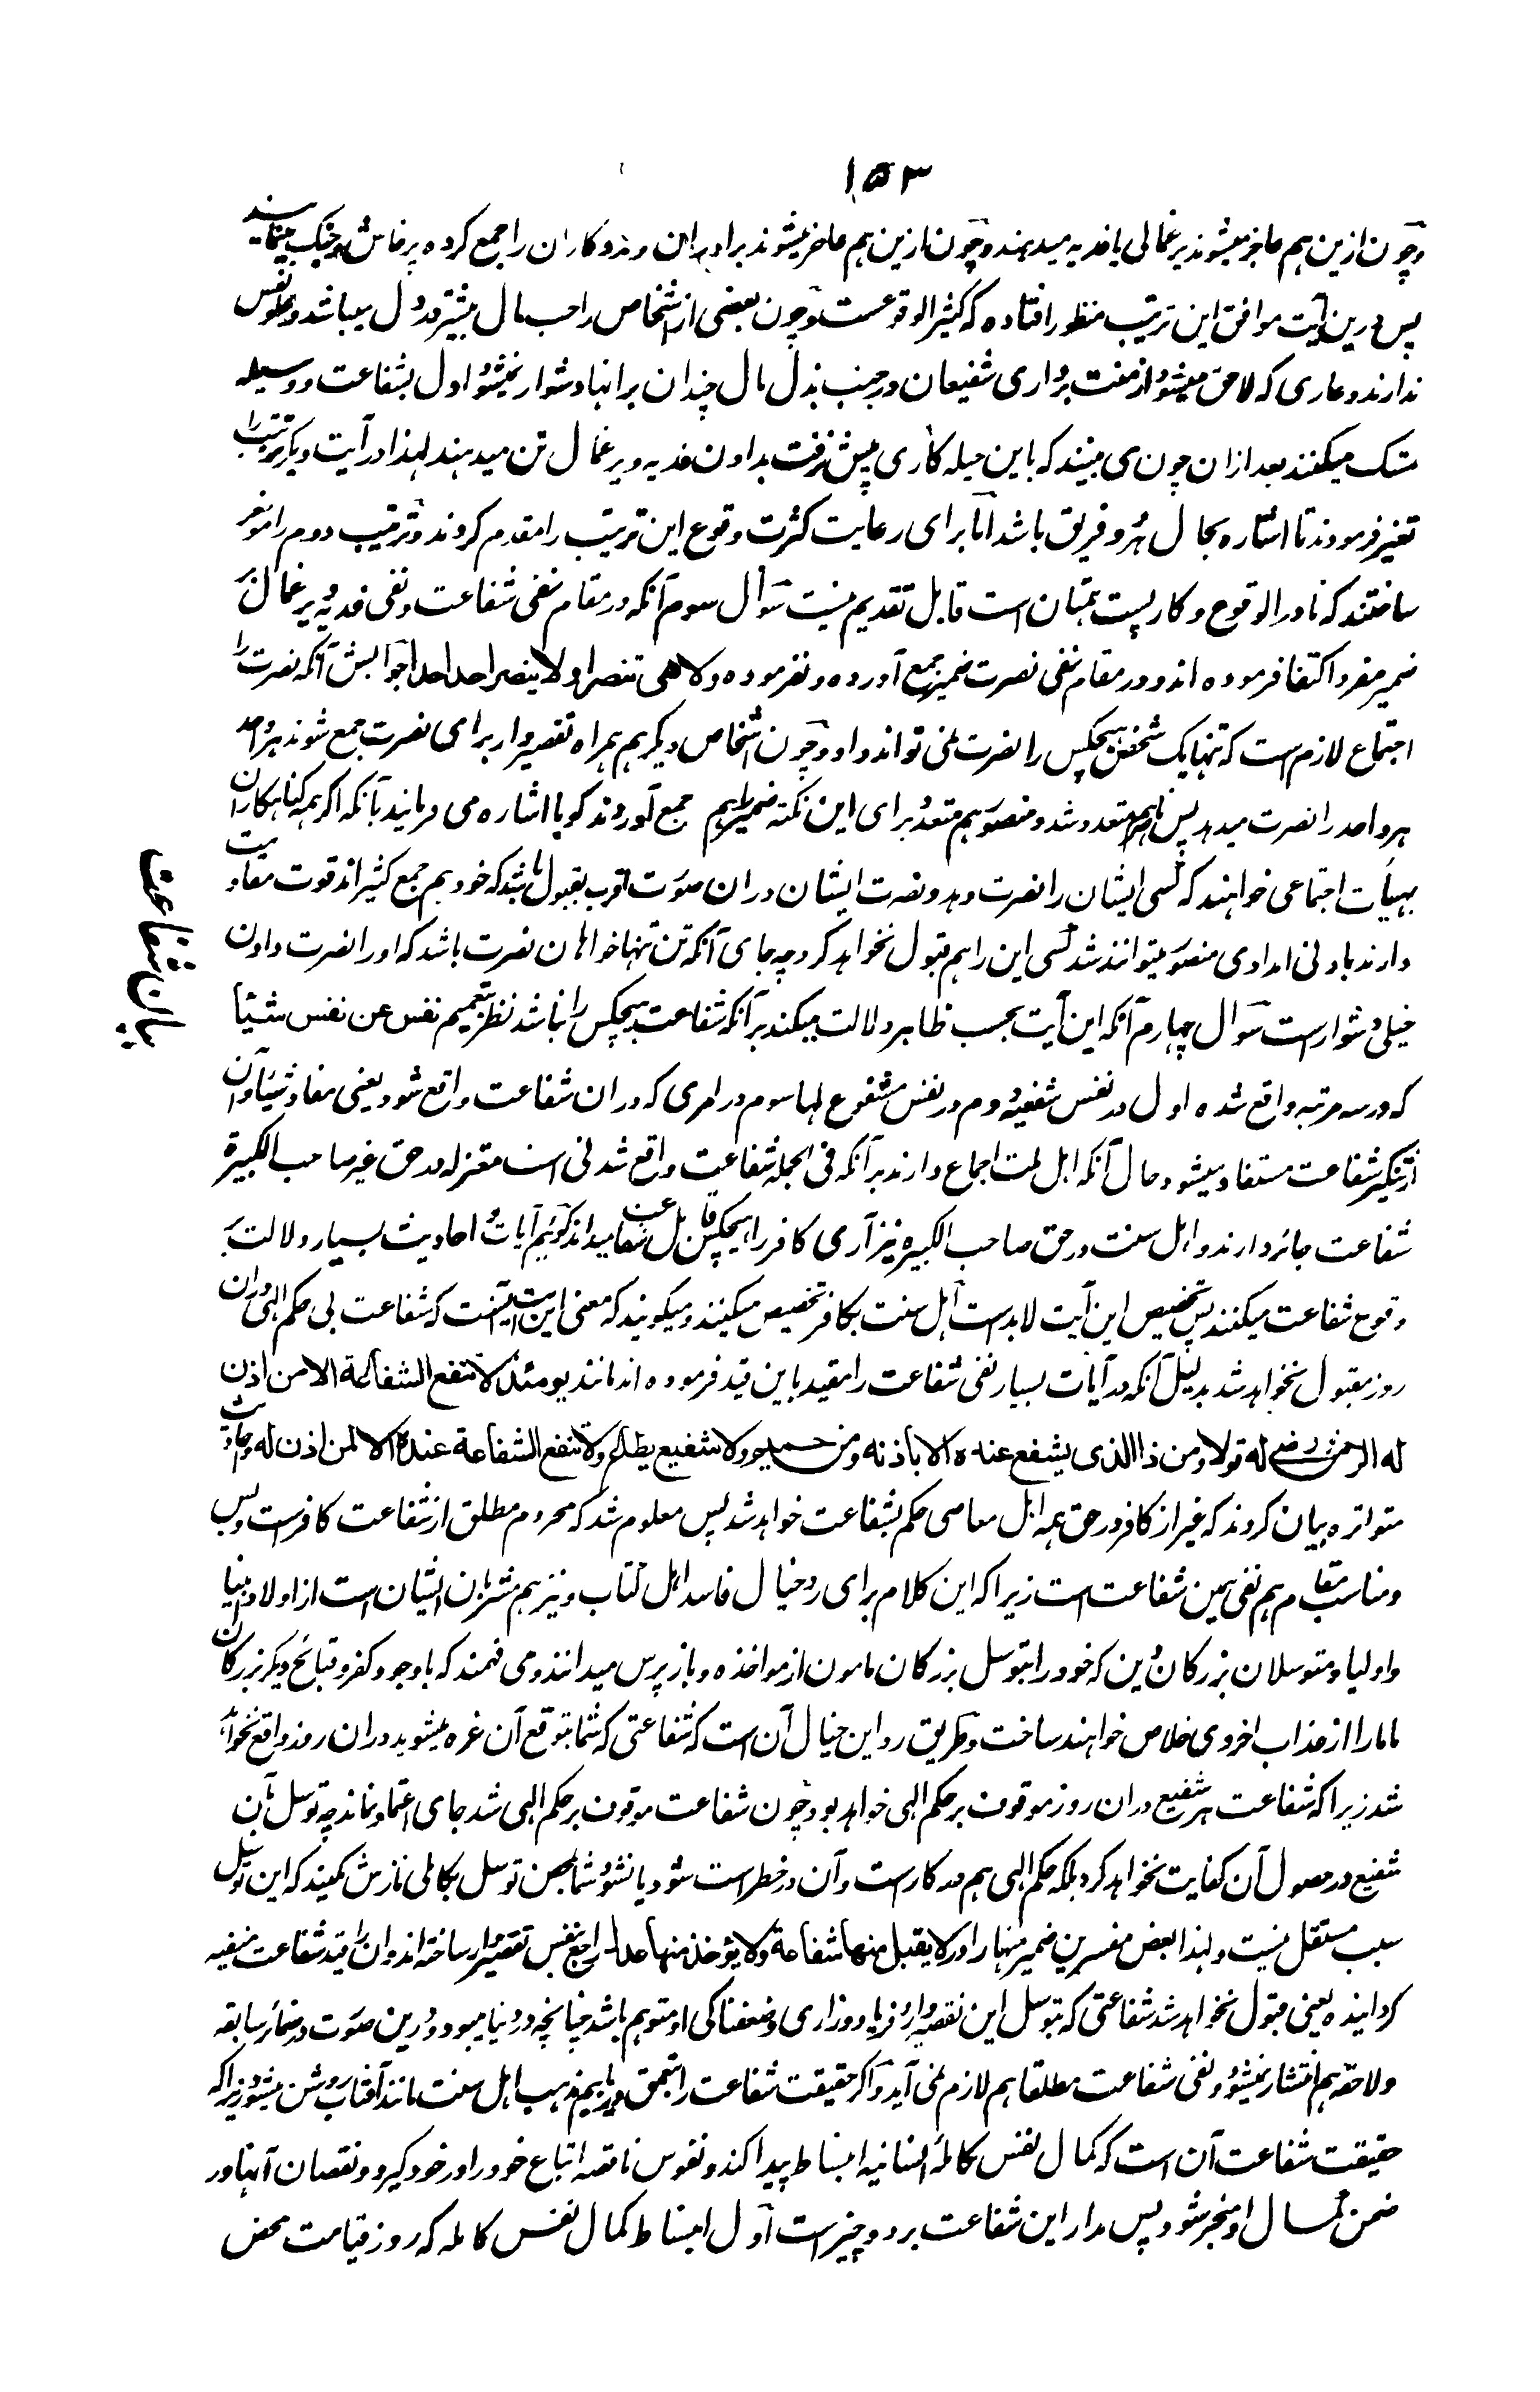 ١٥٣
وچون ازین هم عاجز میشوند یرغمالی یا فدیه میدهند وچون ازین هم عاجز میشوند برادران و مددگاران را جمع کرده پرخاش و جنگ مینمایند
پس درین آیت موافق این ترتیب منظور افتاده که کثیر الوقوعست وچون بعضی از اشخاص را حب مال بیشتر در دل میباشد و علو نفس
ندارند و عاری که لاحق میشود از منت برداری شفیعان در جنب بذل مال چندان بر آنها دشوار نمیشود اول بشفاعت و وسیله
تمسک میکنند بعد ازان چون می بینند که باین حیله کاری پیش نرفت بدادن فدیه و یرغمال تن میدهند لهذا در آیت دیگر ترتیب را
تغیر فرمودند تا اشاره بحال هر دو فریق باشد اما برای رعایت کثرت وقوع این ترتیب را مقدم کردند و ترتیب دوم را موخر
ساختند که نادر الوقوع و کار پست همتان است قابل تقدیم نیست سوال سوم آنکه در مقام نفی شفاعت و نفی فدیه و یرغمال بر
ضمیر مفرد اکتفا فرموده اند و در مقام نفی نصرت ضمیر جمع آورده و نفرموده ولا هی تنصر او لا ینصر احد احدا جوابش آنکه نصرت را
اجتماع لازم است که تنها یک شخص هیچکس را نصرت نمی تواند داد و چون اشخاص دیگر هم همراه تقصیروار برای نصرت جمع شوند هر واحد
هر واحد را نصرت میدهد پس ناصر هم متعدد شد و منصور هم متعدد برای این نکته ضمیر را هم جمع آوردند گویا اشاره می فرمایند بآنکه اگر همه گناهکاران
بهیأت اجتماعی خواهند که کسی ایشان را نصرت دهد و نصرت ایشان دران صورت اقرب بقبول باشد که خود هم جمع کثیر اند قوت مقاومت
دارند بادنی امدادی منصور میتوانند شد کسی این را هم قبول نخواهد کرد چه جای آنکه تن تنها خواهان نصرت باشد که او را نصرت دادن
خیلی دشوار است سوال چهارم آنکه این آیت بحسب ظاهر دلالت میکند بر آنکه شفاعت هیچکس را نباشد نظر بتعمیم نفس عن نفس شیئا
که در سه مرتبه واقع شده اول در نفس شفیعه دوم در نفس مشفوع لها سوم در امری که دران شفاعت واقع شود یعنی مفاد شیئا و آن
از تنکیر شفاعت مستفاد میشود حال آنکه اهل ملت اجماع دارند بر آنکه فی الجمله شفاعت واقع شدنی است معتزله در حق غیر صاحب الکبیرة
شفاعت جائز دارند و اهل سنت در حق صاحب الکبیره نیز آری کافر را هیچکس قابل شفاعت نمیداند گوئیم آیات و احادیث بسیار دلالت بر
وقوع شفاعت میکنند پس تخصیص این آیت لابد است اهل سنت بکافر تخصیص میکنند و میگویند که معنی این آیت اینست که شفاعت بی حکم الهی دران
روز مقبول نخواهد شد بدلیل آنکه در آیات بسیار نفی شفاعت را مقید باین قید فرموده اند مانند یومئذ لا تنفع الشفاعة الا من اذن
له الرحمن ورضی له قولا و من ذا الذی یشفع عنده الا باذنه و من حمیم ولا شفیع یطاع ولا تنفع الشفاعة عنده الا لمن اذن له و احادیث
متواتره بیان کردند که غیر از کافر در حق همه اهل معاصی حکم بشفاعت خواهد شد پس معلوم شد که محروم مطلق از شفاعت کافر است و بس
و مناسب مقام هم نفی همین شفاعت است زیرا که این کلام برای رد خیال فاسد اهل کتاب و نیز هم مشربان ایشان است از اولاد انبیا
و اولیا و متوسلان بزرگان دین که خود را بتوسل بزرگان مامون از مواخذه و باز پرس میدانند و می فهمند که با وجود کفر و قبائح دیگر بزرگان
ما مارا از عذاب اخروی خلاص خواهند ساخت و طریق رد این خیال آن است که شفاعتی که شما بتوقع آن غره میشوید دران روز واقع نخواهد
شد زیرا که شفاعت هر شفیع دران روز موقوف بر حکم الهی خواهد بود و چون شفاعت موقوف بر حکم الهی شد جای اعتماد نماند چه توسل بآن
شفیع در حصول آن کفایت نخواهد کرد بلکه حکم الهی هم در کار است و آن در خطر است شود یا نشود شما بمحض توسل بکاملی نازش مکنید که این توسل
سبب مستقل نیست و لهذا بعض مفسرین ضمیر منها را در لا یقبل منها شفاعة ولا یؤخذ منها عدل راجع بنفس تقصیروار ساخته اند و آن را قید شفاعت منفیه
گردانیده یعنی قبول نخواهد شد شفاعتی که بتوسل این تقصیروار و فریاد و زاری و ضعفناکی او متوهم باشد چنانچه در دنیا میبود و درین صورت در ضمائر سابقه
و لاحقه هم انتشار نمیشود و نفی شفاعت مطلقا هم لازم نمی آید و اگر حقیقت شفاعت را بتعمق دریابیم مذهب اهل سنت مانند آفتاب روشن میشود زیرا که
حقیقت شفاعت آن است که کمال نفس کامله انسانیه انبساط پیدا کند و نفوس ناقصه اتباع خود را در خود گیرد و نقصان آنها در
ضمن کمال او منجبر شود پس مدار این شفاعت بر دو چیز است اول انبساط کمال نفس کامله که روز قیامت محض
بیان شفاعت